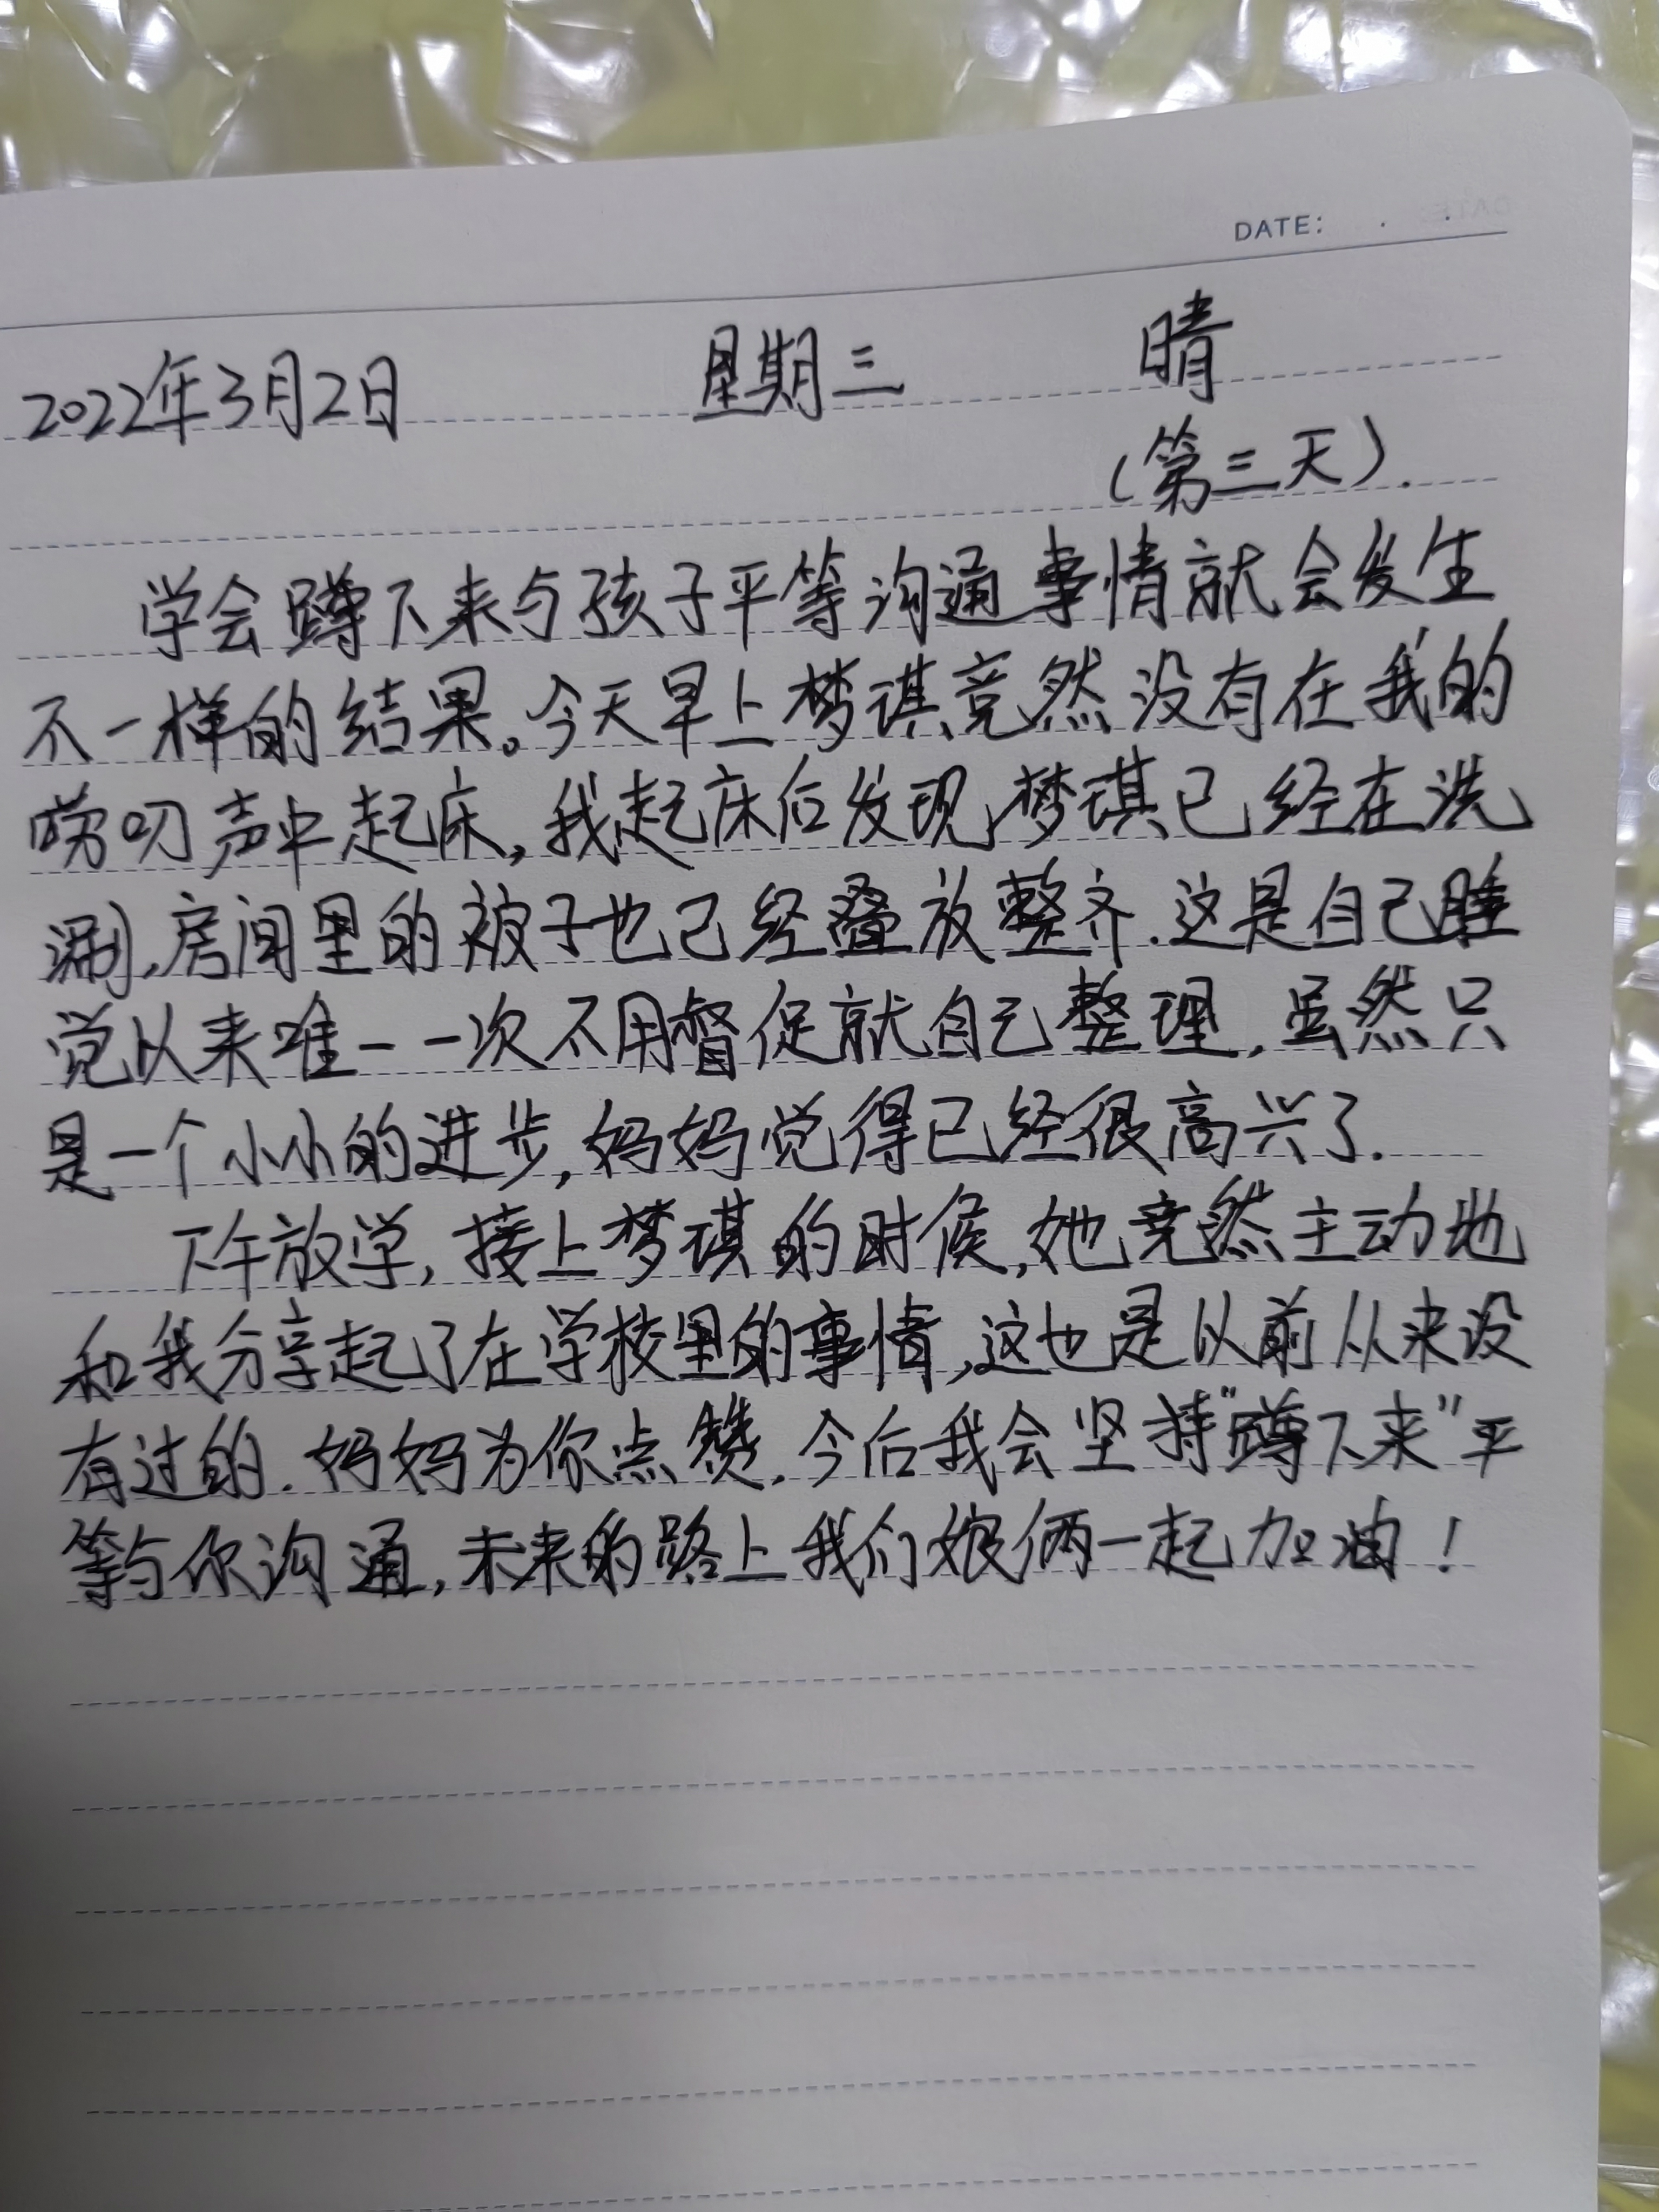 DATE: . .
2022年3月2日 星期三 晴
（第三天）.
学会蹲下来与孩子平等沟通事情就会发生
不一样的结果。今天早上梦琪竟然没有在我的
唠叨声中起床,我起床后发现梦琪已经在洗
涮,房间里的被子也已经叠放整齐.这是自己睡
觉以来唯一一次不用督促就自己整理,虽然只
是一个小小的进步,妈妈觉得已经很高兴了.
下午放学,接上梦琪的时候,她竟然主动地
和我分享起了在学校里的事情,这也是以前从来没
有过的.妈妈为你点赞.今后我会坚持"蹲下来"平
等与你沟通,未来的路上我们娘俩一起加油!